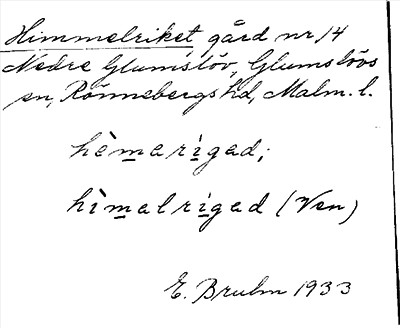 Himmelriket gård nr 14
Nedre Glumslöv, Glumslövs
sn, Rönnebergs hd, Malm. l.
hèmarigad;
hìmalrigad (Ven)
E. Bruhn 1933